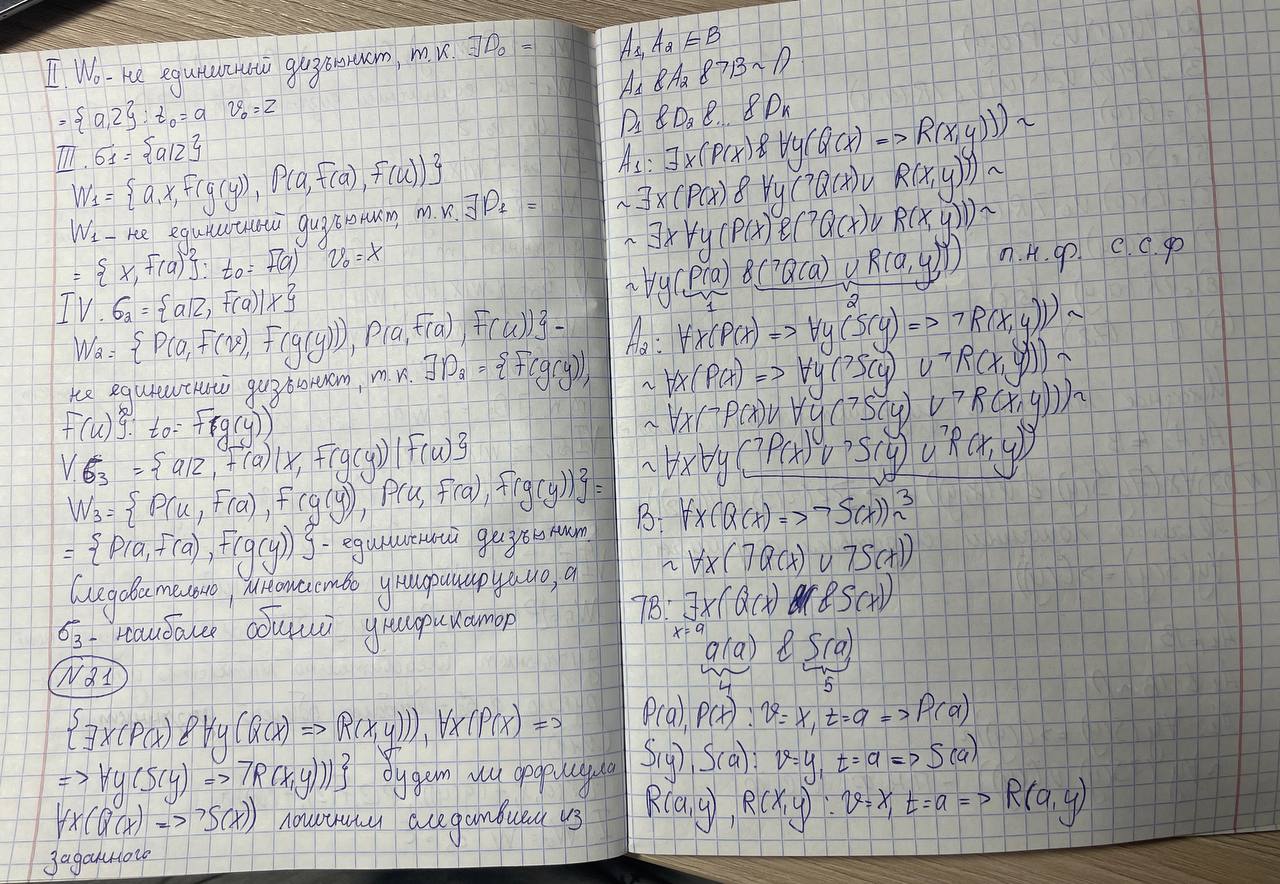 II. W₀ - не единичный дизъюнкт, т.к. ∃D₀ =
= {a,z}: t₀ = a v₀ = z
III. σ₁ = {a|z}
W₁ = {a,x,F(g(y)), P(a,F(a), F(u))}
W₁ - не единичный дизъюнкт, т.к. ∃D₁ =
= {x, F(a)}: t₀ = F(a) v₀ = x
IV. σ₂ = {a|z, F(a)|x}
W₂ = {P(a, F(v), F(g(y))), P(a, F(a), F(u))} -
не единичный дизъюнкт, т.к. ∃D₂ = {F(g(y)),
F(u)}: t₀ = F(g(y))
V. σ₃ = {a|z, F(a)|x, F(g(y))|F(u)}
W₃ = {P(u, F(a), F(g(y)), P(u, F(a), F(g(y))} =
= {P(a, F(a), F(g(y))} - единичный дизъюнкт.
Следовательно, множество унифицируемо, а
σ₃ - наиболее общий унификатор
N21
{∃x(P(x) & ∀y(Q(x) => R(x,y))), ∀x(P(x) =>
=> ∀y(S(y) => ¬R(x,y)))} будет ли формула
∀x(Q(x) => ¬S(x)) логичным следствием из
заданного
A₁, A₂ ⊨ B
A₁ & A₂ & ¬B ~ Л
D₁ & D₂ & ... & Dₖ
A₁: ∃x(P(x) & ∀y(Q(x) => R(x,y))) ~
~ ∃x(P(x) & ∀y(¬Q(x) ∨ R(x,y))) ~
~ ∃x∀y(P(x) & (¬Q(x) ∨ R(x,y))) ~
~ ∀y(P(a) & (¬Q(a) ∨ R(a,y))) п.н.ф. с.с.ф
1 2
A₂: ∀x(P(x) => ∀y(S(y) => ¬R(x,y))) ~
~ ∀x(P(x) => ∀y(¬S(y) ∨ ¬R(x,y))) ~
~ ∀x(¬P(x) ∨ ∀y(¬S(y) ∨ ¬R(x,y))) ~
~ ∀x∀y(¬P(x) ∨ ¬S(y) ∨ ¬R(x,y))
3
B: ∀x(Q(x) => ¬S(x)) ~
~ ∀x(¬Q(x) ∨ ¬S(x))
¬B: ∃x(Q(x) & S(x))
x=a
a(a) & S(a)
4 5
P(a), P(x): v=x, t=a => P(a)
S(y), S(a): v=y, t=a => S(a)
R(a,y), R(x,y): v=x, t=a => R(a,y)